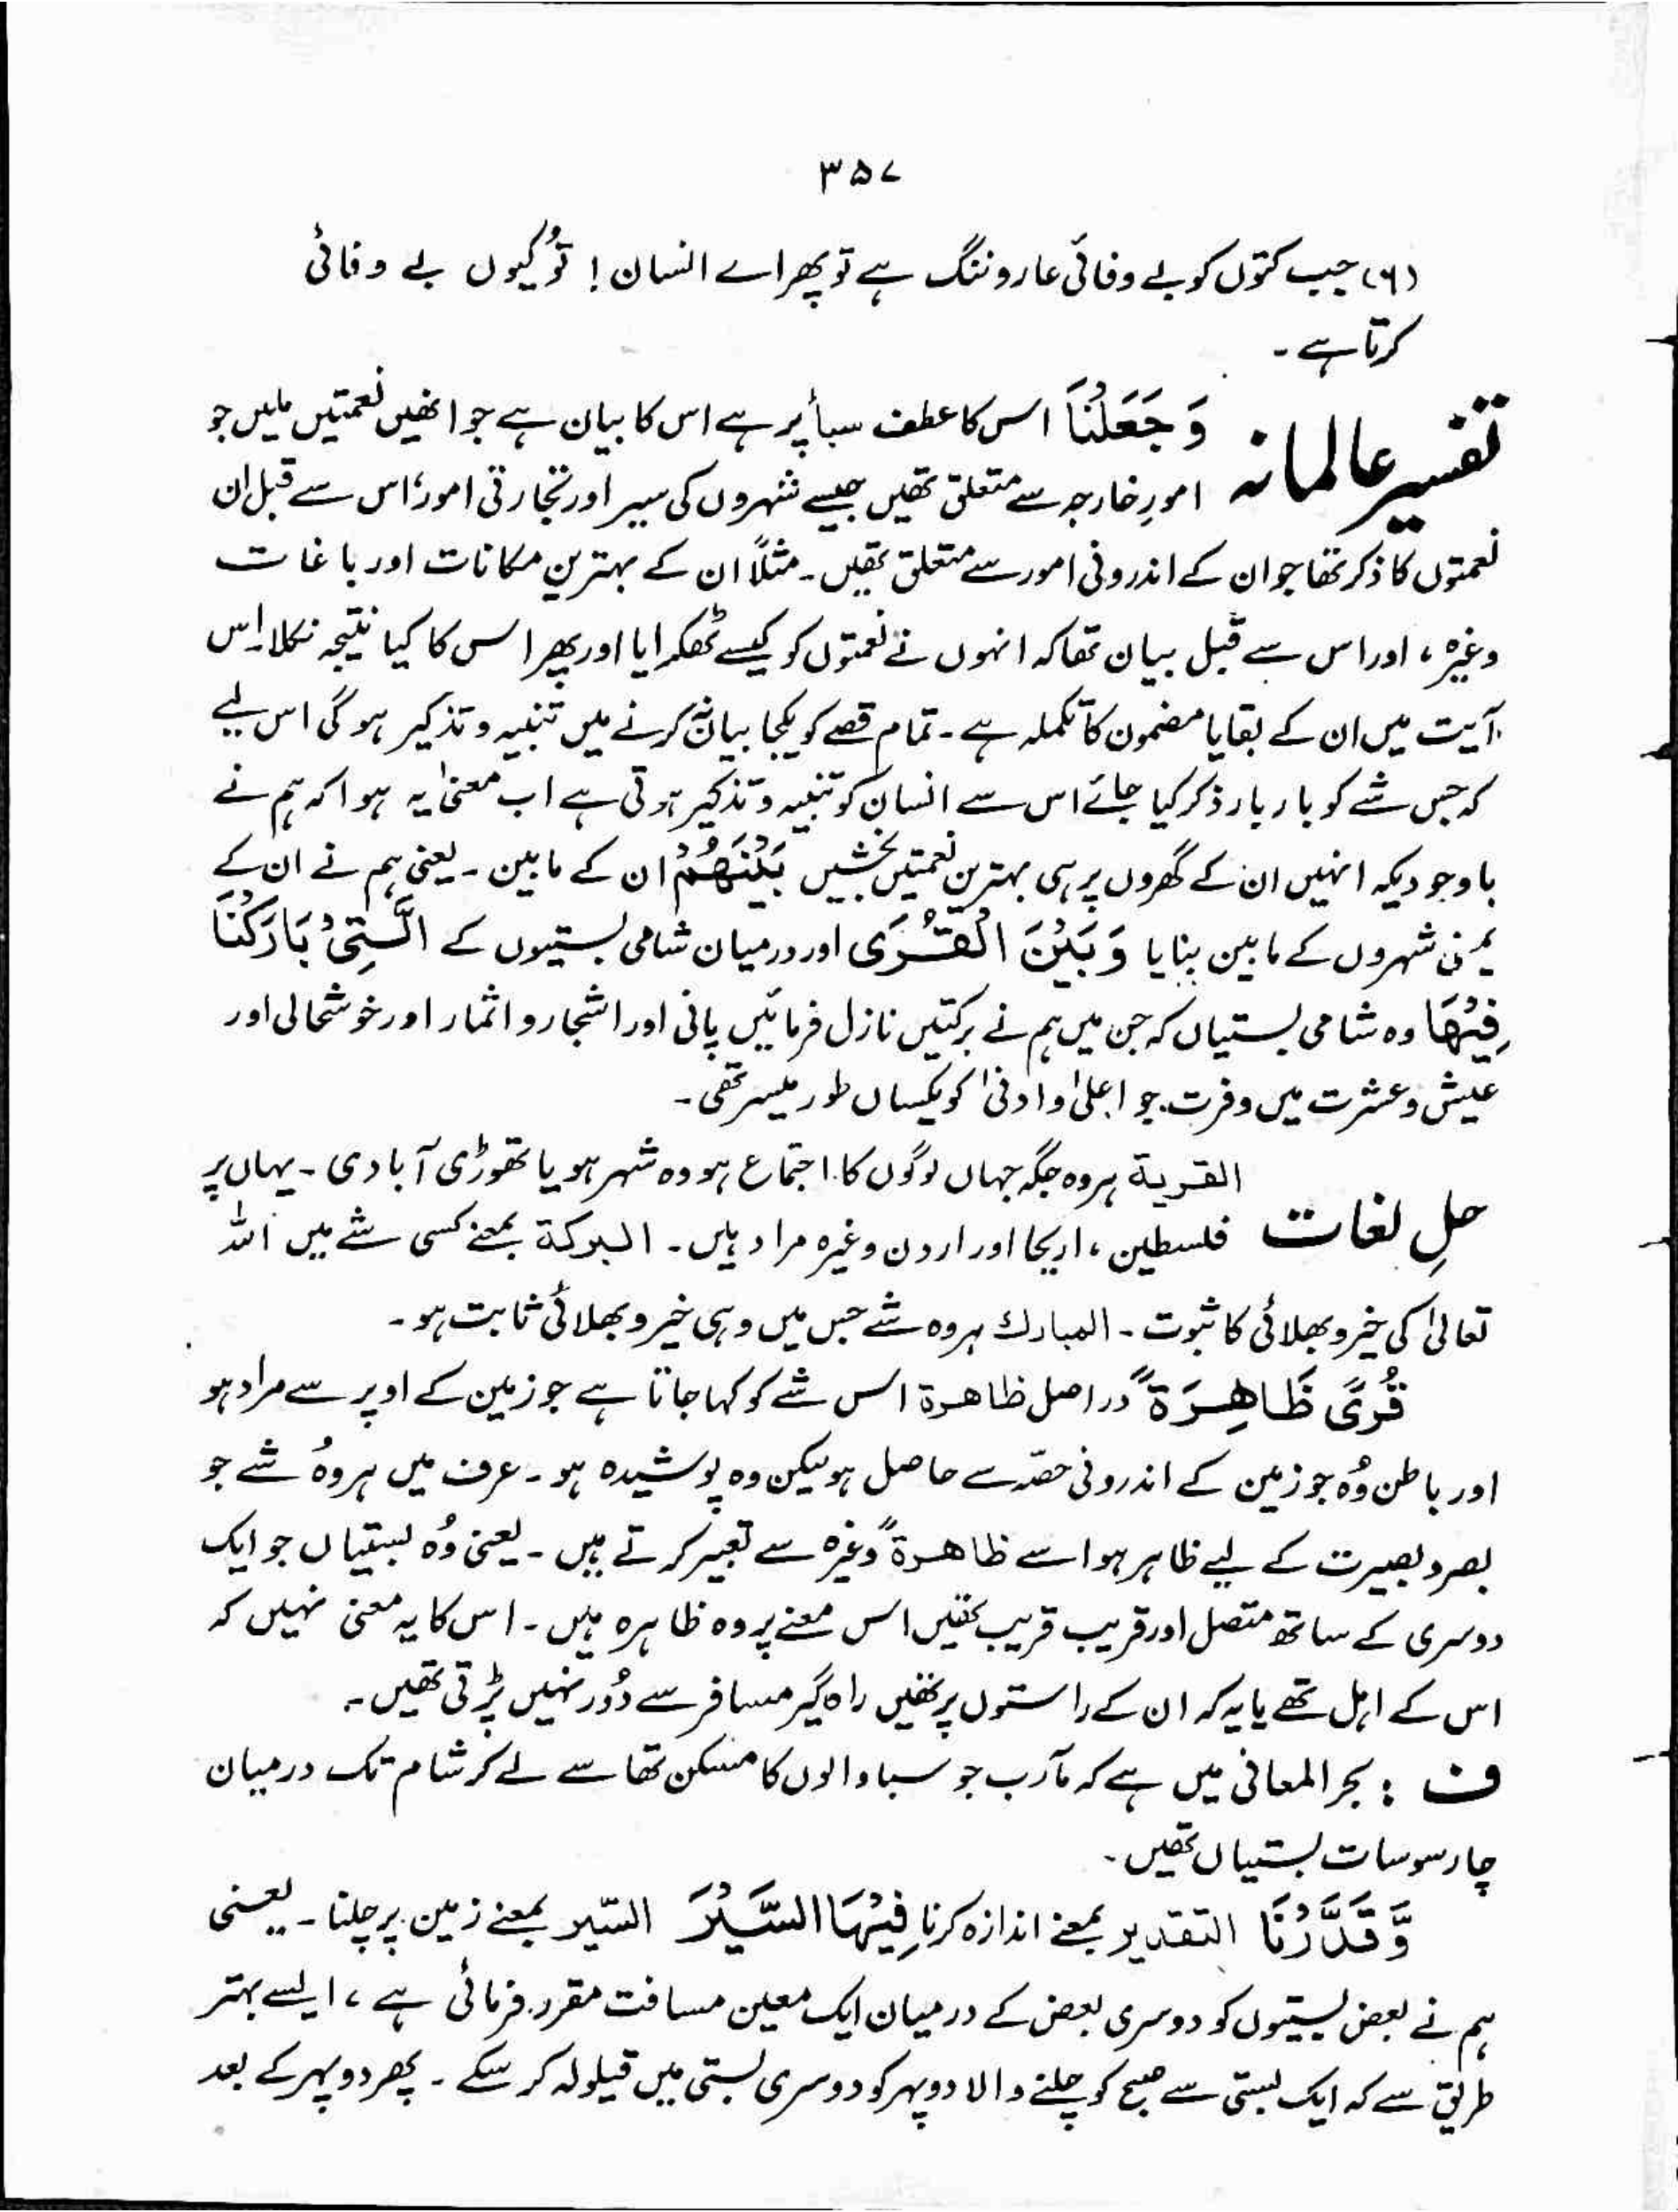 ۳۵۷
(۶) جب کتوں کو بے وفائی عار و ننگ ہے تو پھر اے انسان ! تُو کیوں بے وفائی
کرتا ہے ۔
تفسیر عالمانہ وَ جَعَلْنَا اس کا عطف سبأ پر ہے اس کا بیان ہے جو انھیں نعمتیں ملیں جو
امورِ خارجہ سے متعلق تھیں جیسے شہروں کی سیر اور تجارتی امور، اس سے قبل ان
نعمتوں کا ذکر تھا جو ان کے اندرونی امور سے متعلق تھیں ۔ مثلاً ان کے بہترین مکانات اور باغات
وغیرہ ، اور اس سے قبل بیان تھا کہ انہوں نے نعمتوں کو کیسے ٹھکرایا اور پھر اس کا کیا نتیجہ نکلا۔ اس
آیت میں ان کے بقایا مضمون کا تکملہ ہے ۔ تمام قصے کو یکجا بیان نہ کرنے میں تنبیہ و تذکیر ہو گی اس لیے
کہ جس شے کو بار بار ذکر کیا جائے اس سے انسان کو تنبیہ و تذکیر ہوتی ہے اب معنیٰ یہ ہوا کہ ہم نے
باوجودیکہ انہیں ان کے گھروں پر ہی بہترین نعمتیں بخشیں بَیْنَهُمْ ان کے مابین ۔ یعنی ہم نے ان کے
یمنی شہروں کے مابین بنایا وَ بَیْنَ الْقُرَى اور درمیان شامی بستیوں کے الَّتِیْ بَارَكْنَا
فِیْهَا وہ شامی بستیاں کہ جن میں ہم نے برکتیں نازل فرمائیں پانی اور اشجار و اثمار اور خوشحالی اور
عیش و عشرت میں وفرت جو اعلیٰ و ادنیٰ کو یکساں طور میسر تھی ۔
القریة ہر وہ جگہ جہاں لوگوں کا اجتماع ہو وہ شہر ہو یا تھوڑی آبادی ۔ یہاں پر
حلِ لغات فلسطین ، اریحا اور اردن وغیرہ مراد ہیں ۔ البركة بمعنے کسی شے میں اللہ
تعالیٰ کی خیر و بھلائی کا ثبوت ۔ المبارك ہر وہ شے جس میں وہی خیر و بھلائی ثابت ہو ۔
قُرًى ظَاهِرَةً در اصل ظاهرة اس شے کو کہا جاتا ہے جو زمین کے اوپر سے مراد ہو
اور باطن وُہ جو زمین کے اندرونی حصّہ سے حاصل ہو لیکن وہ پوشیدہ ہو ۔ عرف میں ہر وُہ شے جو
بصر و بصیرت کے لیے ظاہر ہو اسے ظاهرةً وغیرہ سے تعبیر کرتے ہیں ۔ یعنی وُہ بستیاں جو ایک
دوسری کے ساتھ متصل اور قریب قریب تھیں اس معنے پر وہ ظاہرہ ہیں ۔ اس کا یہ معنی نہیں کہ
اس کے اہل تھے یا یہ کہ ان کے راستوں پر تھیں راہ گیر مسافر سے دُور نہیں پڑتی تھیں ۔
ف : بحر المعانی میں ہے کہ مآرب جو سبا والوں کا مسکن تھا سے لے کر شام تک درمیان
چار سو سات بستیاں تھیں ۔
وَّ قَدَّرْنَا التقدیر بمعنے اندازہ کرنا فِیْهَا السَّیْرَ السّیر بمعنے زمین پر چلنا ۔ یعنی
ہم نے بعض بستیوں کو دوسری بعض کے درمیان ایک معین مسافت مقرر فرمائی ہے ، ایسے بہتر
طریق سے کہ ایک بستی سے صبح کو چلنے والا دوپہر کو دوسری بستی میں قیلولہ کر سکے ۔ پھر دوپہر کے بعد